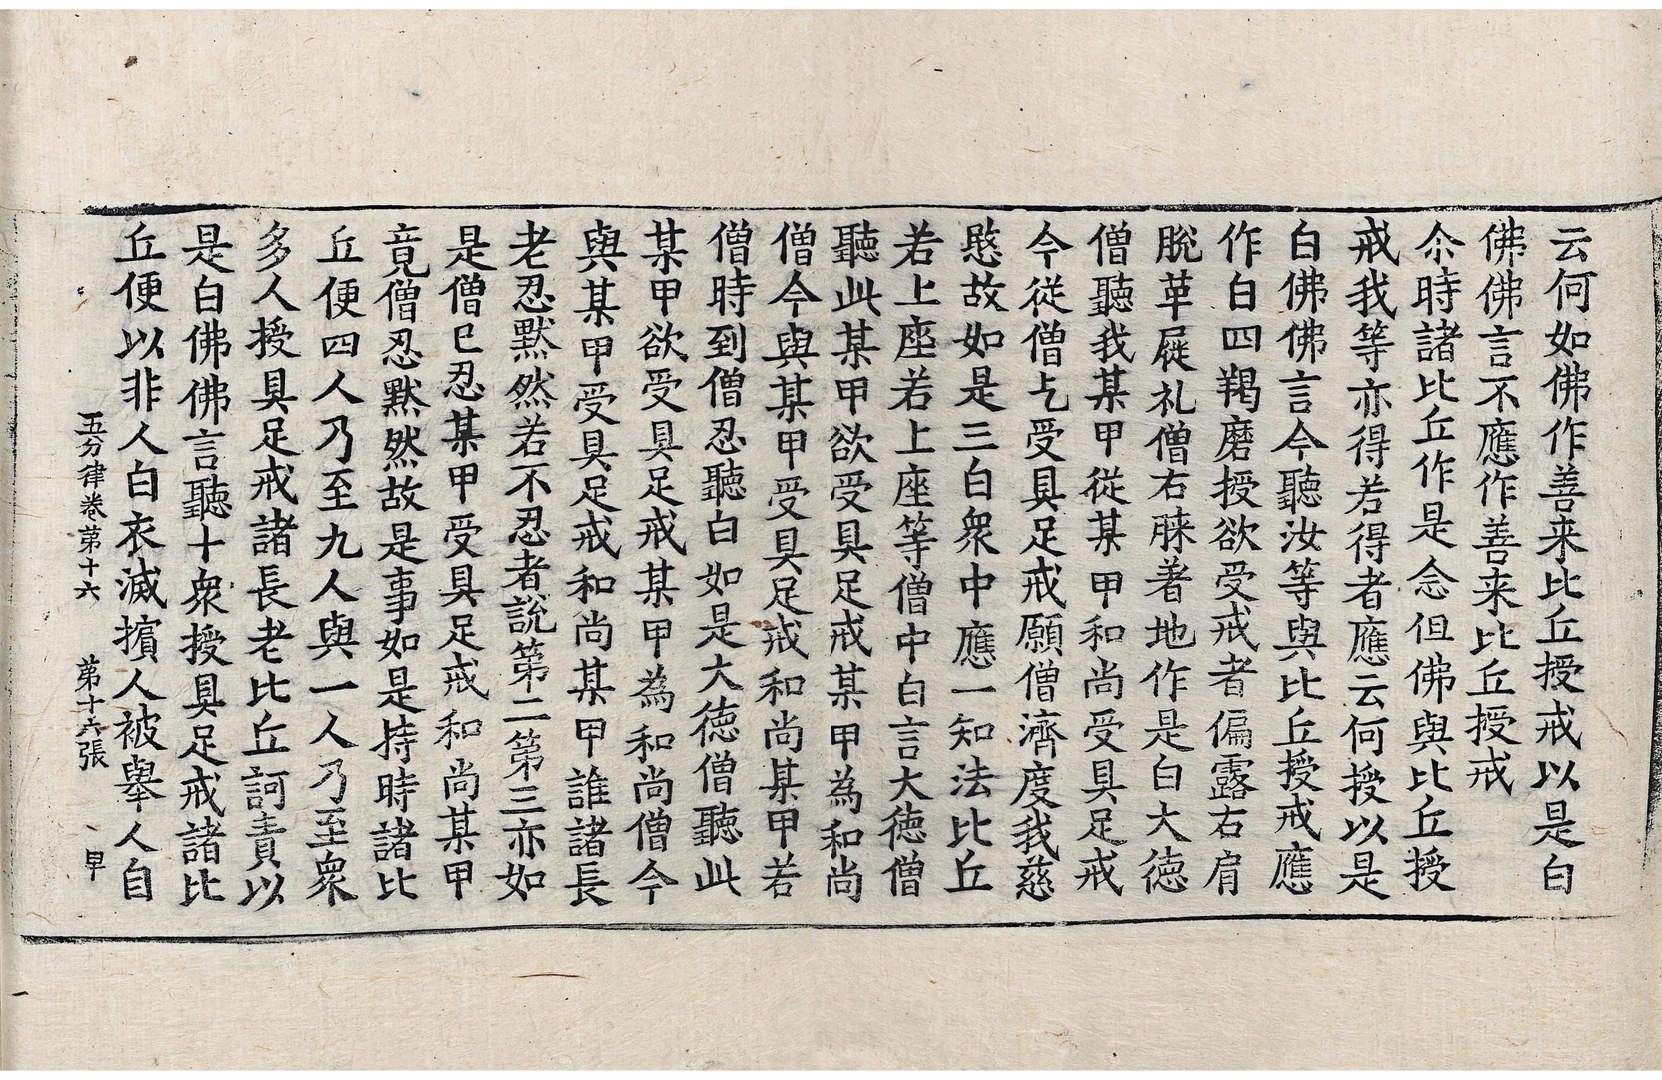 云何如佛作善来比丘授戒以是白
佛佛言不應作善来比丘授戒
尒時諸比丘作是念但佛與比丘授
戒我等亦得若得者應云何授以是
白佛佛言今聽汝等與比丘授戒應
作白四羯磨授欲受戒者偏露右肩
脫革屣礼僧右膝著地作是白大德
僧聽我某甲從某甲和尚受具足戒
今從僧乞受具足戒願僧濟度我慈
愍故如是三白衆中應一知法比丘
若上座若上座等僧中白言大德僧
聽此某甲欲受具足戒某甲為和尚
僧今與某甲受具足戒和尚某甲若
僧時到僧忍聽白如是大德僧聽此
某甲欲受具足戒某甲為和尚僧今
與某甲受具足戒和尚某甲誰諸長
老忍默然若不忍者說第二第三亦如
是僧已忍某甲受具足戒和尚某甲
竟僧忍默然故是事如是持時諸比
丘便四人乃至九人與一人乃至衆
多人授具足戒諸長老比丘訶責以
是白佛佛言聽十衆授具足戒諸比
丘便以非人白衣滅擯人被舉人自
五分律卷第十六 第十六張 甲